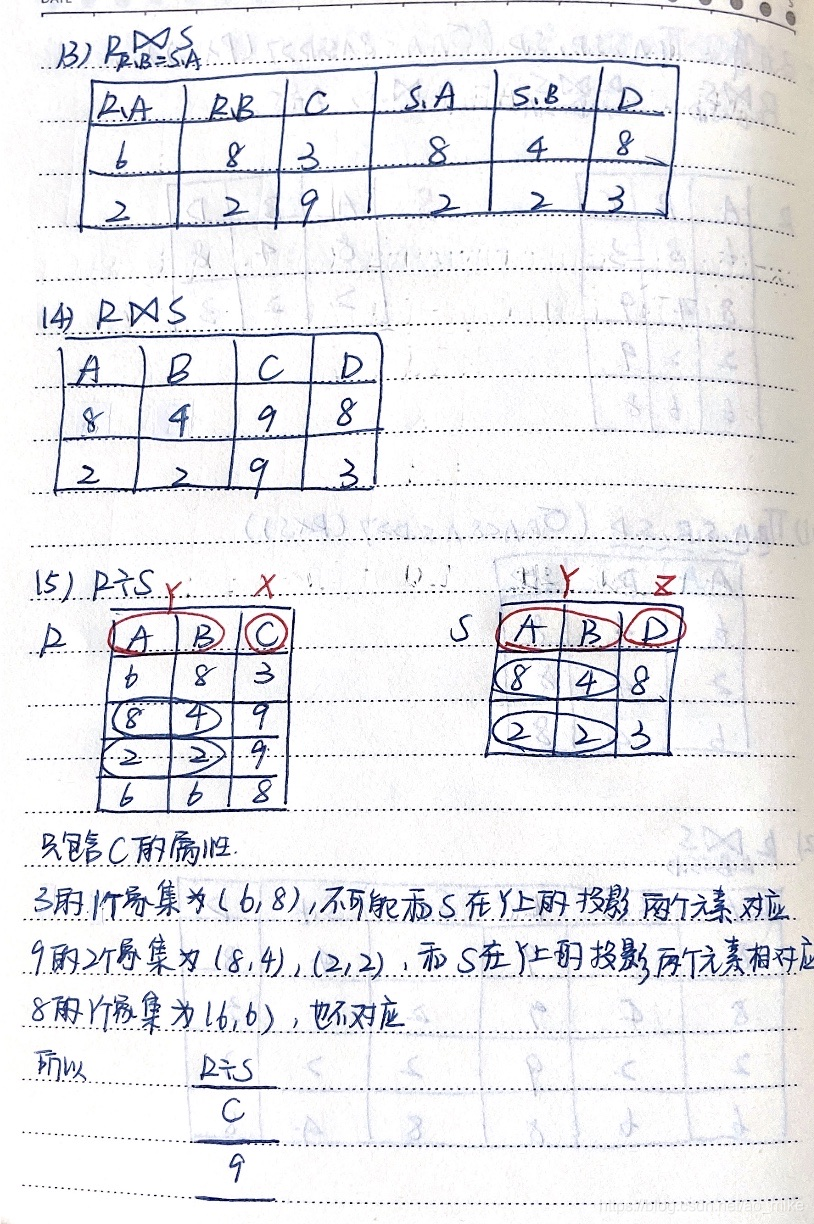 DATE
13) R⋈S
R.B=S.A
R.A R.B C S.A S.B D
6 8 3 8 4 8
2 2 9 2 2 3
14) R⋈S
A B C D
8 4 9 8
2 2 9 3
15) R÷S
Y X Y Z
R A B C S A B D
6 8 3 8 4 8
8 4 9 2 2 3
2 2 9
6 6 8
只包含C的属性.
3的1个象集为(6,8),不可能和S在Y上的投影两个元素对应
9的2个象集为(8,4),(2,2),和S在Y上的投影两个元素相对应
8的1个象集为(6,6),也不对应
所以 R÷S
C
9
https://blog.csdn.net/ao_mike